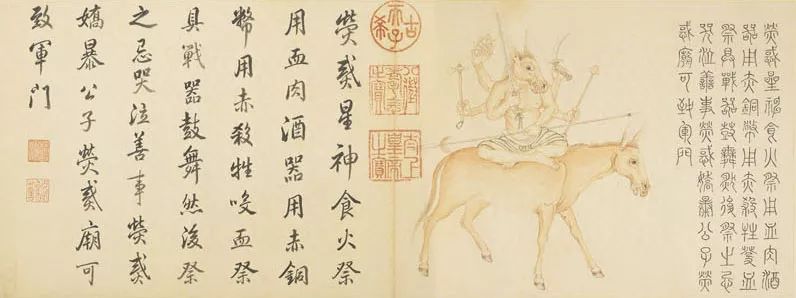 熒惑星神食火祭用血肉酒
器用赤銅幣用赤殺牲血
祭具戰器鼓舞然後祭之忌
哭泣善事熒惑嬌暴公子熒
惑廟可致軍門
古希天子
八徵耄念之寶
太上皇帝之寶
熒惑星神食火祭
用血肉酒器用赤銅
幣用赤殺牲唼血祭
具戰器鼓舞然後祭
之忌哭泣善事熒惑
嬌暴公子熒惑廟可
致軍門